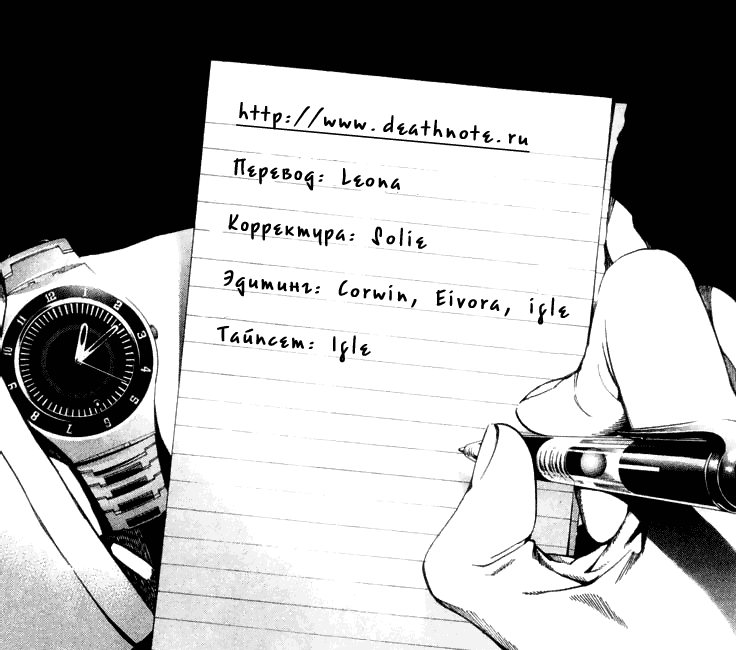 http://www.deathnote.ru
Перевод: Leona
Корректура: Solie
Эдитинг: Corwin, Eivora, igle
Тайпсет: Igle
12 1 2 3 4 5 6 7 8 9 10